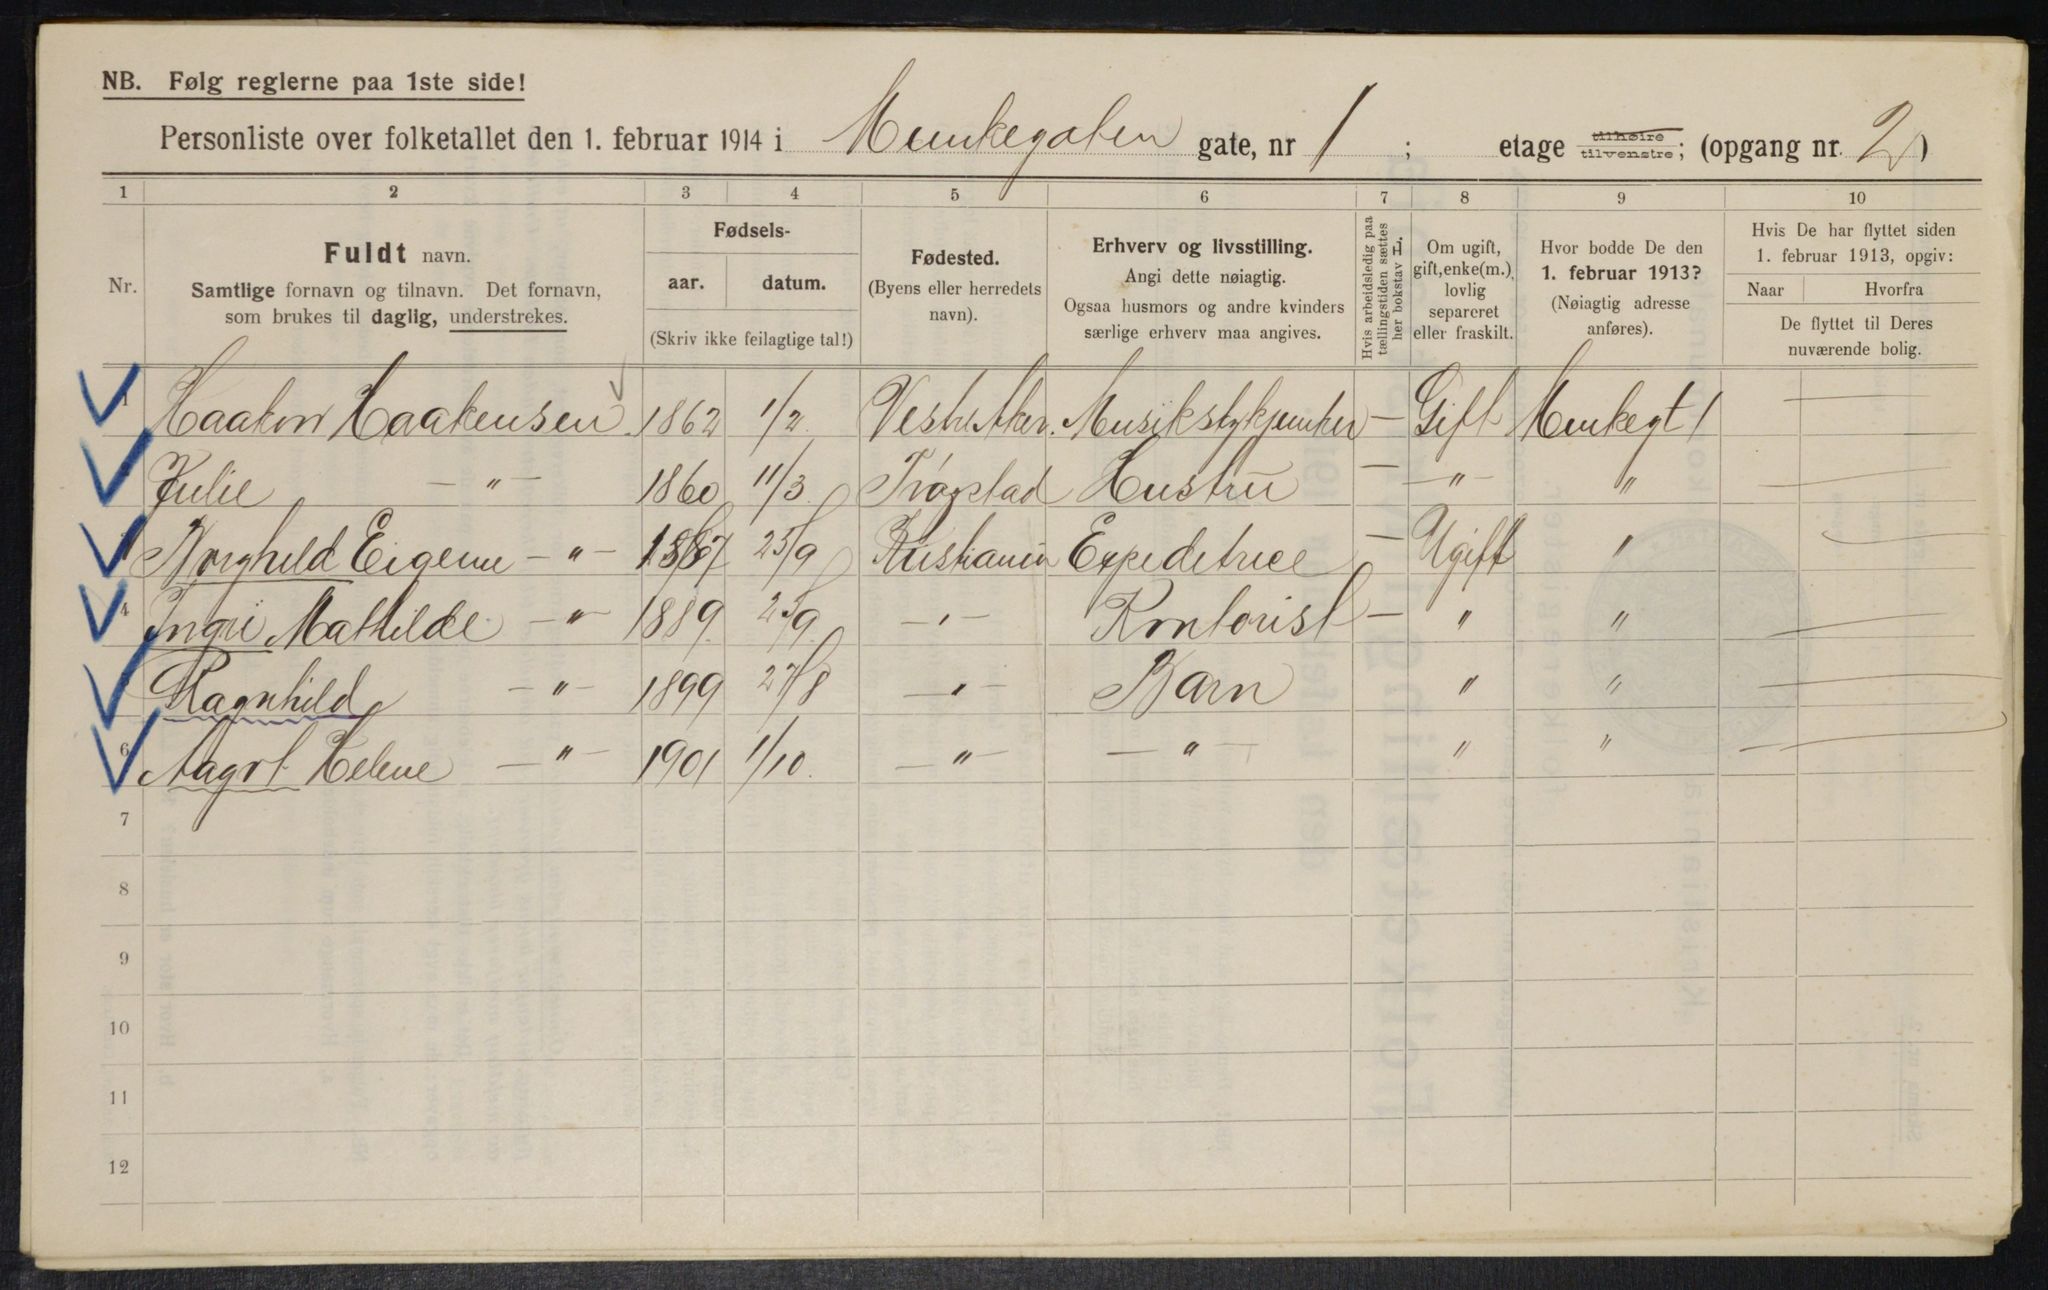 NB. Følg reglerne paa 1ste side!
Personliste over folketallet den 1. februar 1914 i Munkegaten gate, nr 1 ; etage tilhøire tilvenstre; (opgang nr. 2)
1 2 3 4 5 6 7 8 9 10
Nr.
Fuldt navn.
Samtlige fornavn og tilnavn. Det fornavn,
som brukes til daglig, understrekes.
Fødsels-
aar. datum.
(Skriv ikke feilagtige tal!)
Fødested.
(Byens eller herredets
navn).
Erhverv og livsstilling.
Angi dette nøiagtig.
Ogsaa husmors og andre kvinders
særlige erhverv maa angives.
Hvis arbeidsledig paa
tællingstiden sættes
her bokstav L.
Om ugift,
gift, enke(m.),
lovlig
separeret
eller fraskilt.
Hvor bodde De den
1. februar 1913?
(Nøiagtig adresse
anføres).
Hvis De har flyttet siden
1. februar 1913, opgiv:
Naar Hvorfra
De flyttet til Deres
nuværende bolig.
1 Haakon Haakensen 1862 1/2 Vestr. Aker. Musikstykjunker — Gift Munkegt 1 —
Julie — " — 1860 11/3 Trøgstad Hustru — — " — " —
Borghild Eigenie — " — 1887 25/9 Kristiania Expeditrice — Ugift " —
4 Ingri Mathilde — " — 1889 25/9 — " — Kontorist — " " —
Ragnhild — " — 1899 27/8 — " — Barn " " —
6 Aagot Helene — " — 1901 1/10. — " — — " — " " —
7
8
9
10
11
12